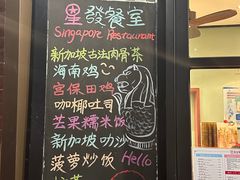 星發餐室
Singapore Restaurant
新加坡古法肉骨茶
海南鸡
宫保田鸡
咖椰吐司
芒果糯米饭
新加坡叻沙
菠萝炒饭 Hello